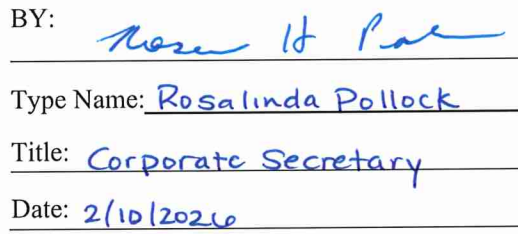 BY:
Type Name: Rosalinda Pollock
Title: Corporate Secretary
Date: 2/10/2026